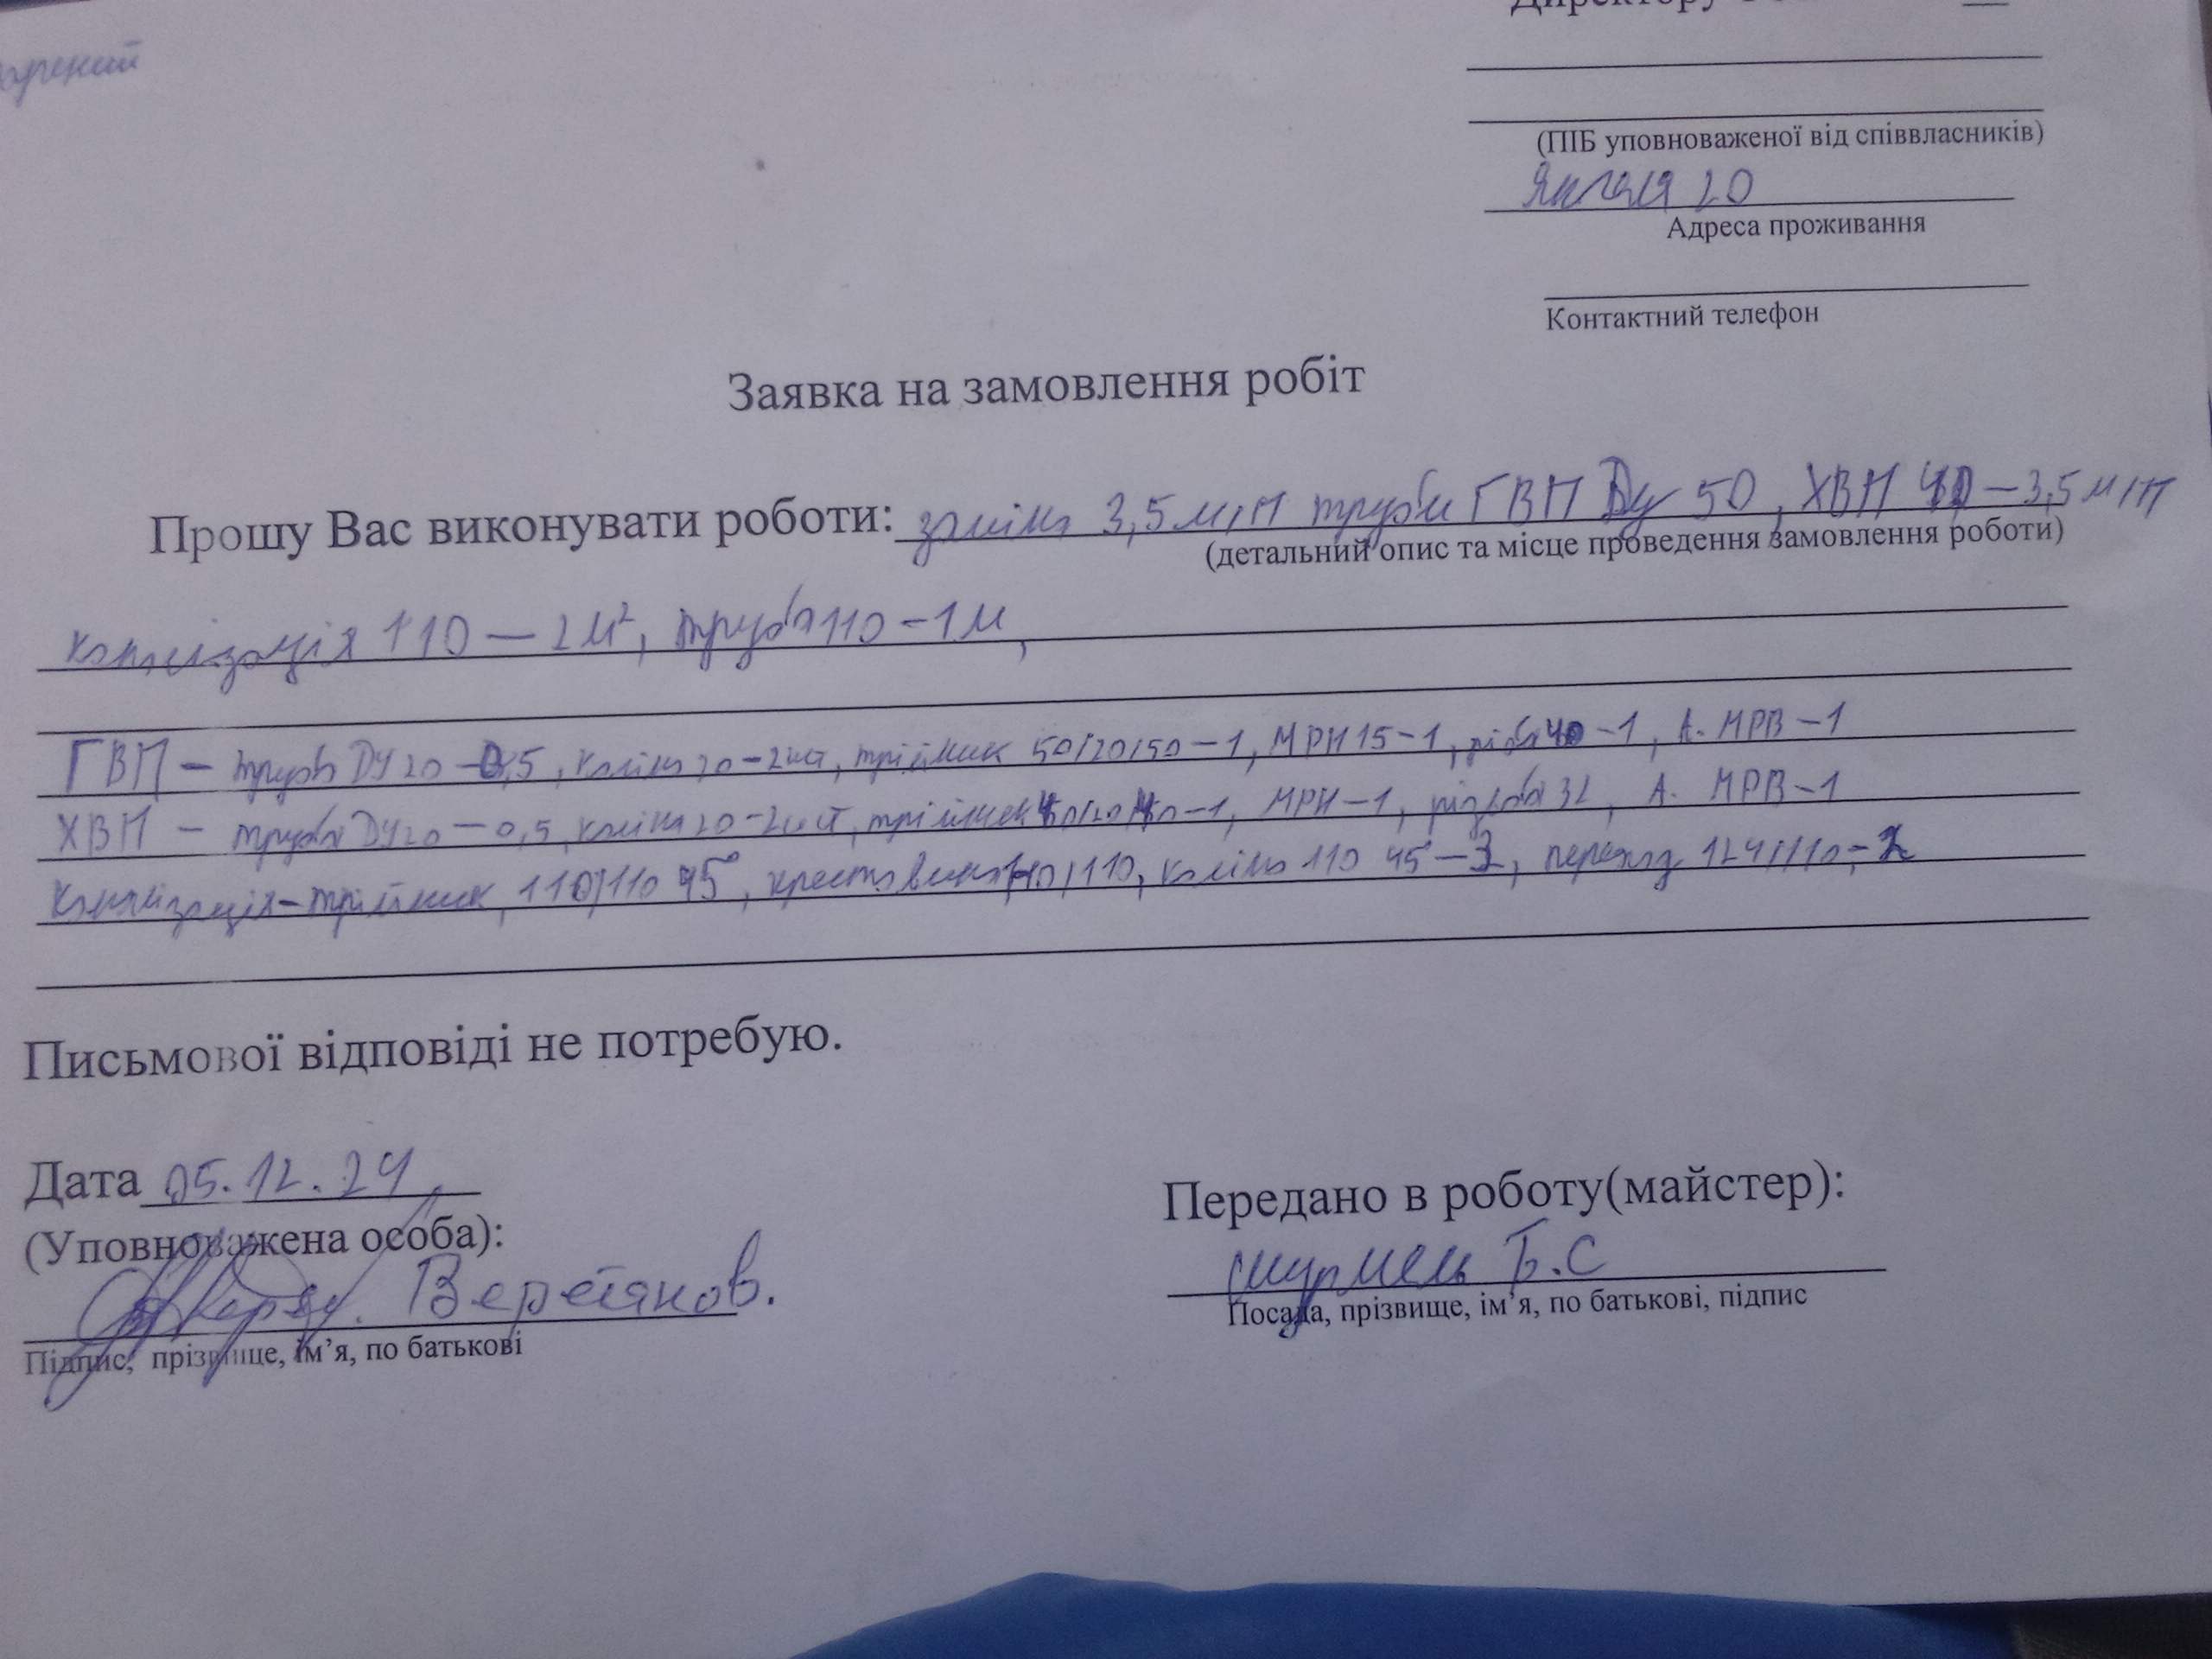 Директору
(ПІБ уповноваженої від співвласників)
Янгеля 20
Адреса проживання
Контактний телефон
Заявка на замовлення робіт
Прошу Вас виконувати роботи: заміна 3,5 м/п труби ГВП Ду 50, ХВП 40 – 3,5 м/п
(детальний опис та місце проведення замовлення роботи)
каналізація 110 – 2м², труба 110 – 1м,
ГВП – труба ДУ 20 – 0,5, коліно 20 – 2шт, трійник 50/20/50 – 1, МРН 15 – 1, 40 – 1, А. МРВ – 1
ХВП – труба ДУ 20 – 0,5, коліно 20 – 2шт, трійник 40/20/40 – 1, МРН – 1, різьба 32, А. МРВ – 1
Каналізація – трійник, 110/110 45°, крестовина 110/110, коліно 110 45° – 3, переход 124/110 – 2
Письмової відповіді не потребую.
Дата 05.12.24
(Уповноважена особа):
Веретянов.
Підпис, прізвище, ім’я, по батькові
Передано в роботу(майстер):
Б.С
Посада, прізвище, ім’я, по батькові, підпис